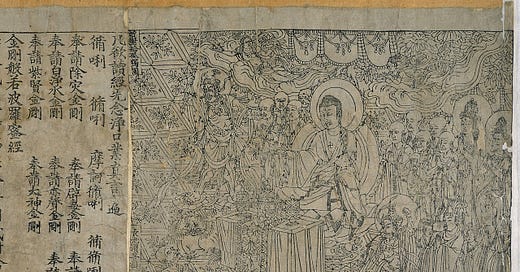 凡欲讀經先念淨口業真言一遍
脩唎 脩唎 摩訶脩唎 脩脩唎
奉請除災金剛 奉請辟毒金剛 奉請
奉請白淨水金剛 奉請赤聲金剛 奉請
奉請紫賢金剛 奉請大神金剛
金剛般若波羅蜜經